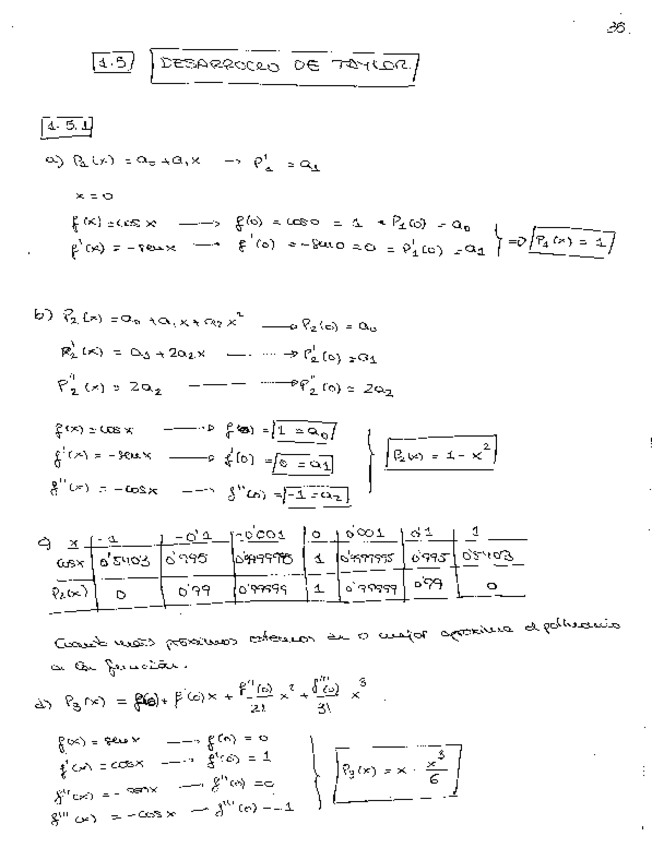 35.
1.5 DESARROLLO DE TAYLOR
1.5.1
a) P₁(x) = a₀ + a₁x → P₁' = a₁
x = 0
f(x) = cos x → f(0) = cos 0 = 1 = P₁(0) = a₀
f'(x) = -sen x → f'(0) = -sen 0 = 0 = P₁'(0) = a₁ } => P₁(x) = 1
b) P₂(x) = a₀ + a₁x + a₂x² → P₂(0) = a₀
P₂'(x) = a₁ + 2a₂x → P₂'(0) = a₁
P₂''(x) = 2a₂ → P₂''(0) = 2a₂
f(x) = cos x → f(0) = 1 = a₀
f'(x) = -sen x → f'(0) = 0 = a₁ } P₂(x) = 1 - x²
f''(x) = -cos x → f''(0) = -1 = a₂
c) x | -1 | -0'1 | -0'001 | 0 | 0'001 | 0'1 | 1
cos x | 0'5403 | 0'995 | 0'9999995 | 1 | 0'9999995 | 0'995 | 0'5403
P₂(x) | 0 | 0'99 | 0'99999 | 1 | 0'99999 | 0'99 | 0
Cuanto más próximos estemos de 0 mejor aproxima el polinomio
a la función.
d) P₃(x) = f(0) + f'(0)x + f''(0)/2! x² + f'''(0)/3! x³
f(x) = sen x → f(0) = 0
f'(x) = cos x → f'(0) = 1
f''(x) = -sen x → f''(0) = 0 } P₃(x) = x - x³/6
f'''(x) = -cos x → f'''(0) = -1